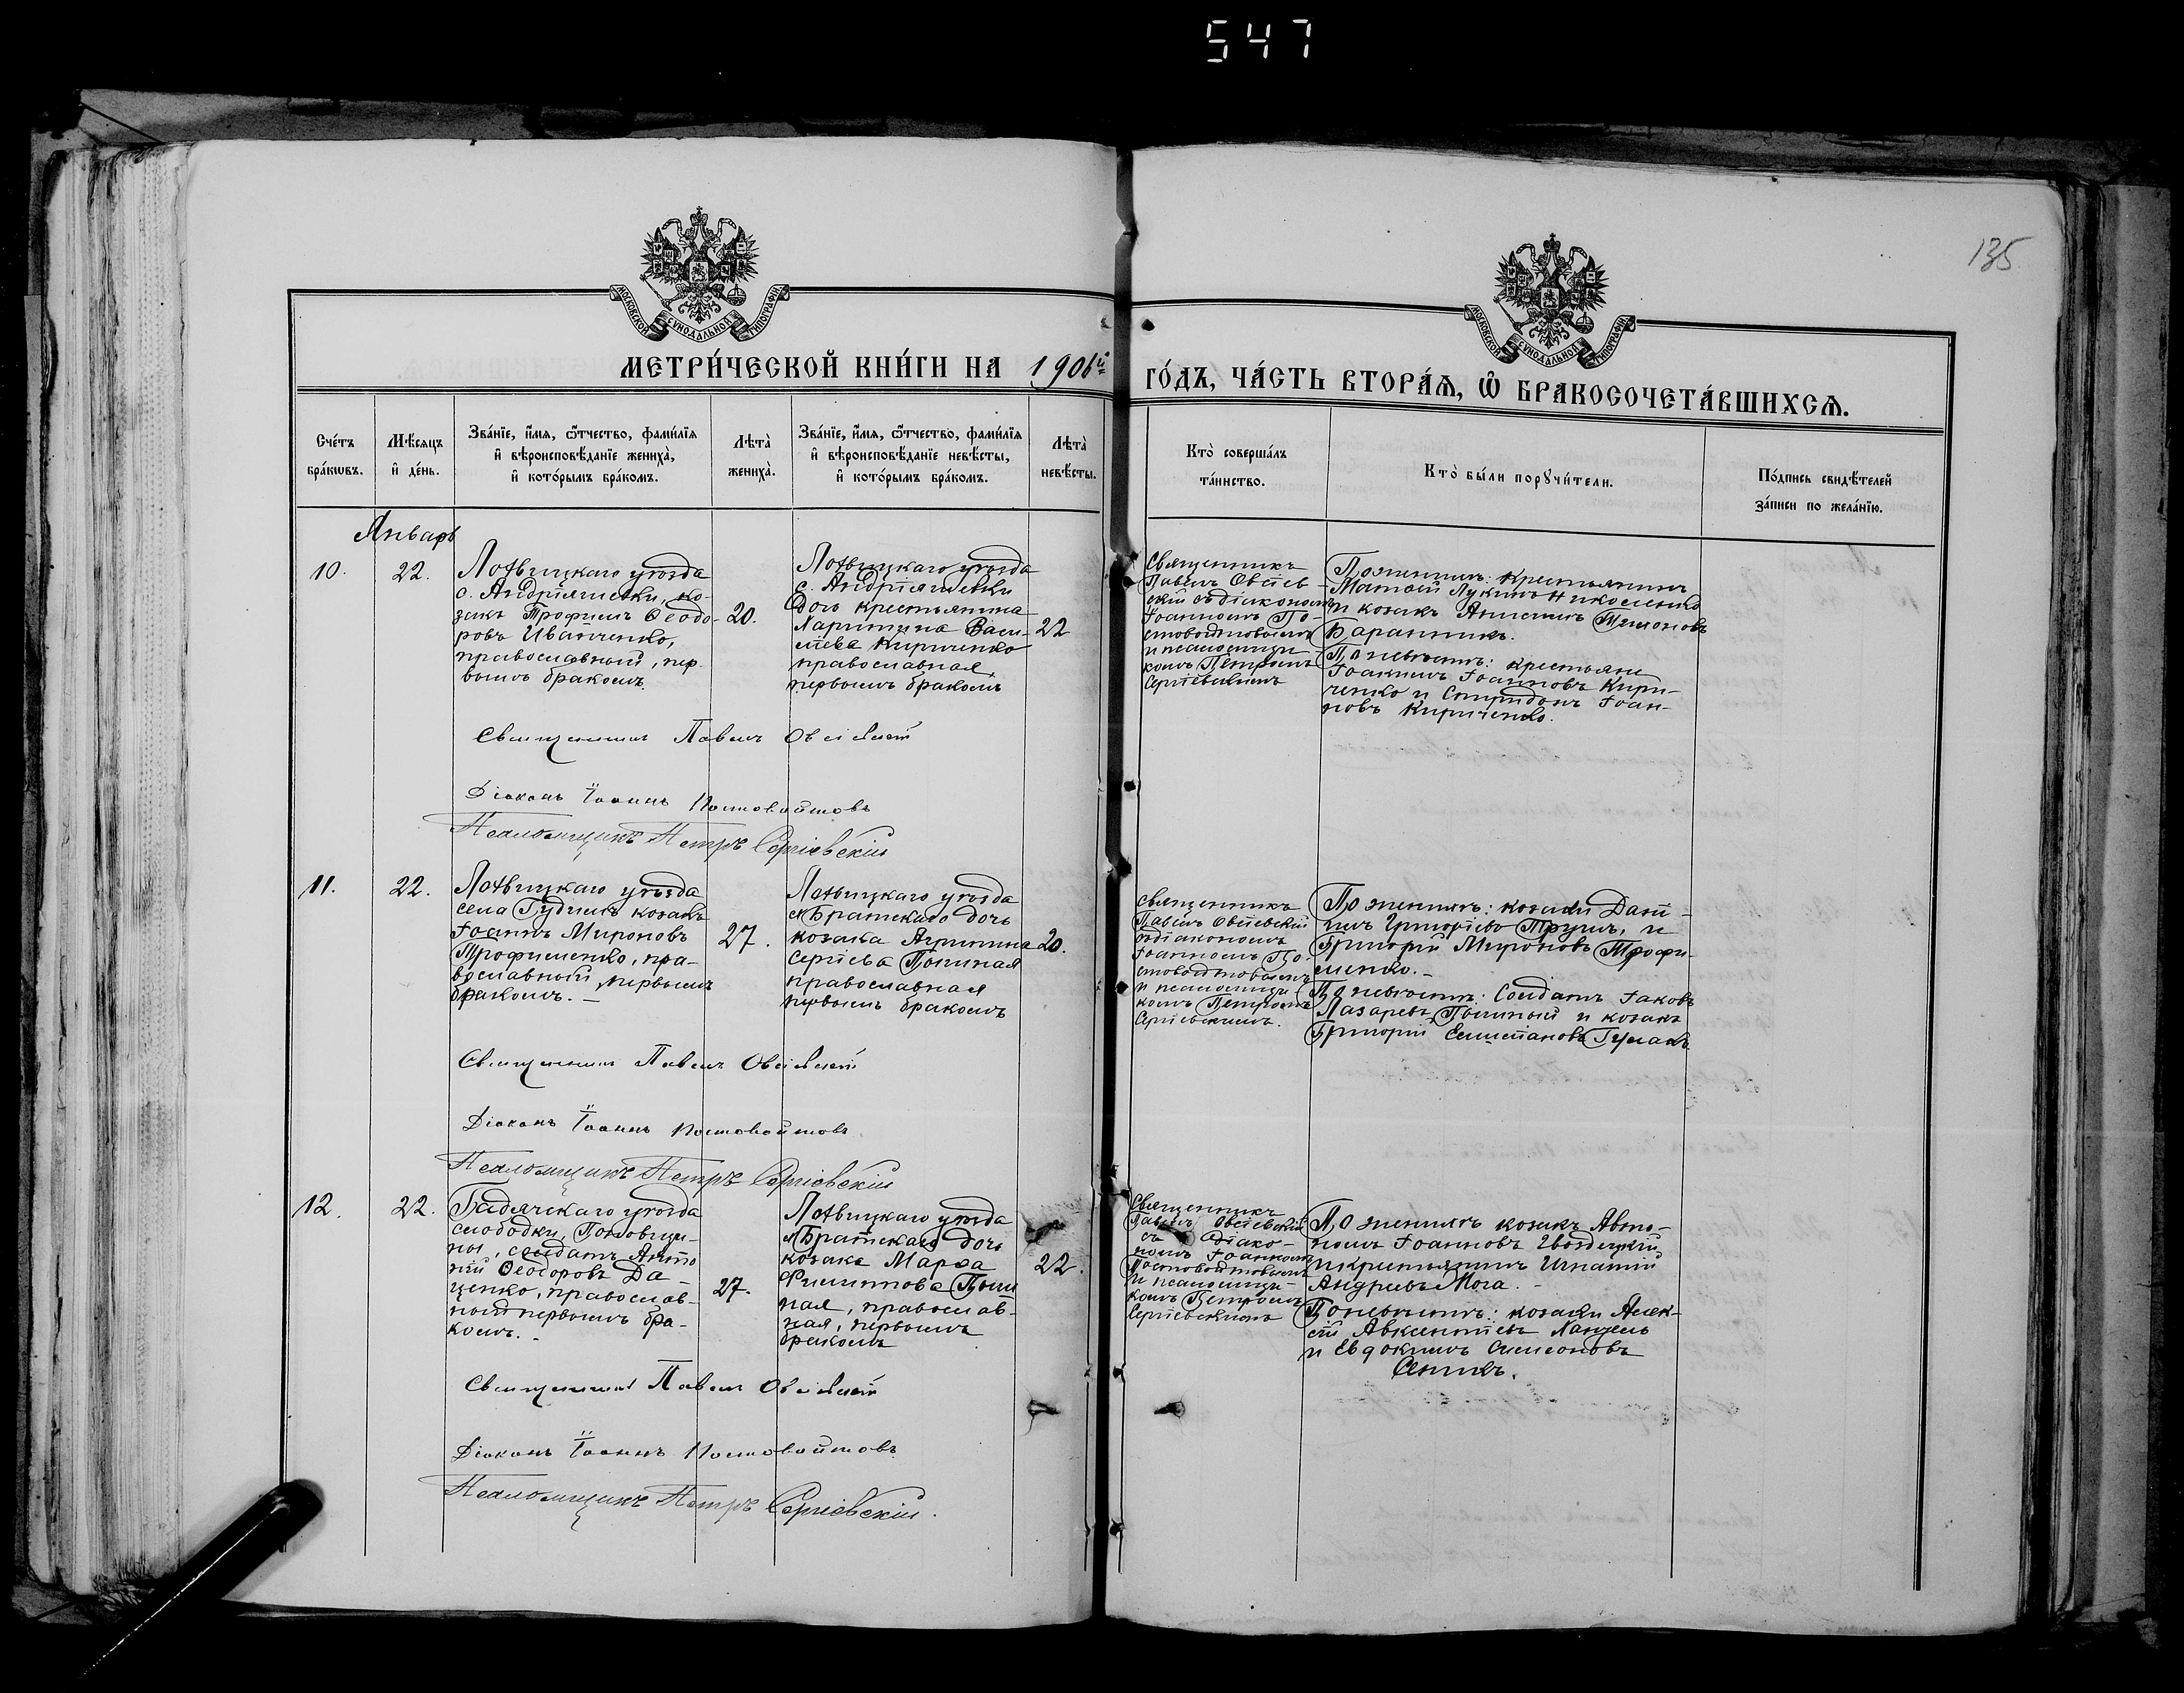 547
135
МОСКОВСКОЙ СѴНОДАЛЬНОЙ ТИПОГРАФІИ
МОСКОВСКОЙ СѴНОДАЛЬНОЙ ТИПОГРАФІИ
МЕТРИ́ЧЕСКОЙ КНИ́ГИ НА 1906й
ГО́ДЪ, ЧА́СТЬ ВТОРА́Ѧ, Ѽ БРАКОСОЧЕТА́ВШИХСѦ.
Сче́тъ
бра́кѡвъ.
Мѣ́сѧцъ
и҆ де́нь.
Зва́нїе, и҆́мѧ, ѻ҆́тчество, фами́лїѧ
и҆ вѣроисповѣ́данїе женихà,
и҆ кото́рымъ бра́комъ.
Лѣтà
женихà.
Зва́нїе, и҆́мѧ, ѻ҆́тчество, фами́лїѧ
и҆ вѣроисповѣ́данїе невѣ́сты,
и҆ кото́рымъ бра́комъ.
Лѣтà
невѣ́сты.
Кто̀ соверша́лъ
та́инство.
Кто̀ бы́ли порꙋчи́тели.
По́дпись свидѣ́телей
за́писи по жела́нїю.
Январь
10.
22.
Лохвицкаго уѣзда
с. Андріяшевки, ко-
закъ Трофимъ Ѳеодо-
ровъ Иванченко,
православный, пер-
вымъ бракомъ.
20.
Лохвицкаго уѣзда
с. Андріяшевки
дочь крестьянина
Харитина Васи-
лiева Кириченко
православная
первымъ бракомъ
22
Священникъ
Павелъ Овсіев-
скій съ діакономъ
Іоанномъ По-
стовойтовымъ
и псаломщи-
комъ Петромъ
Сергіевскимъ
По женихѣ: крестьянинъ
Матѳей Лукинъ Николенко
и козакъ Анисимъ Тимоновъ
Баранникъ.
По невѣстѣ: крестьяне
Іоакимъ Іоанновъ Кири-
ченко и Спиридонъ Іоан-
новъ Кириченко.
Священникъ Павелъ Овсіевскій
Діаконъ Іоаннъ Постовойтовъ
Псаломщикъ Петръ Сергіевскій
11.
22.
Лохвицкаго уѣзда
села Гудимъ козакъ
Іоаннъ Мироновъ
Трофименко, пра-
вославный, первымъ
бракомъ. —
27.
Лохвицкаго уѣзда
х. Братскаго дочь
козака Агрипина
Сергіева Пошиная
православная
первымъ бракомъ
20.
Священникъ
Павелъ Овсіевскій
съ діакономъ
Іоанномъ По-
стовойтовымъ
и псаломщи-
комъ Петромъ
Сергіевскимъ.
По женихѣ: козаки Дани-
илъ Григорьевъ Трушъ, и
Григорій Мироновъ Трофи-
менко. —
По невѣстѣ: Солдатъ Іаковъ
Лазаревъ и козакъ
Григорій
Священникъ Павелъ Овсіевскій
Діаконъ Іоаннъ Постовойтовъ
Псаломщикъ Петръ Сергіевскій
12.
22.
Гадячскаго уѣзда
слободки, Половщи-
ны, солдатъ Анто-
ній Ѳеодоровъ Да-
ценко, православ-
ный первымъ бра-
комъ. —
27.
Лохвицкаго уѣзда
х. Братскаго дочь
козака Марѳа
Филиппова
ная, православ-
ная, первымъ
бракомъ
22.
Священникъ
Павелъ Овсіевскій
съ діако-
номъ Іоанномъ
Постовойтовымъ
и псаломщи-
комъ Петромъ
Сергіевскимъ
По женихѣ козакъ Авто-
номъ Іоанновъ Гвоздецкій
и крестьянинъ Игнатій
Андреевъ Мога. —
По невѣстѣ: козаки Алек-
сій Авксентіевъ
и Евдокимъ Симеоновъ
Сеникъ.
Священникъ Павелъ Овсіевскій
Діаконъ Іоаннъ Постовойтовъ
Псаломщикъ Петръ Сергіевскій.